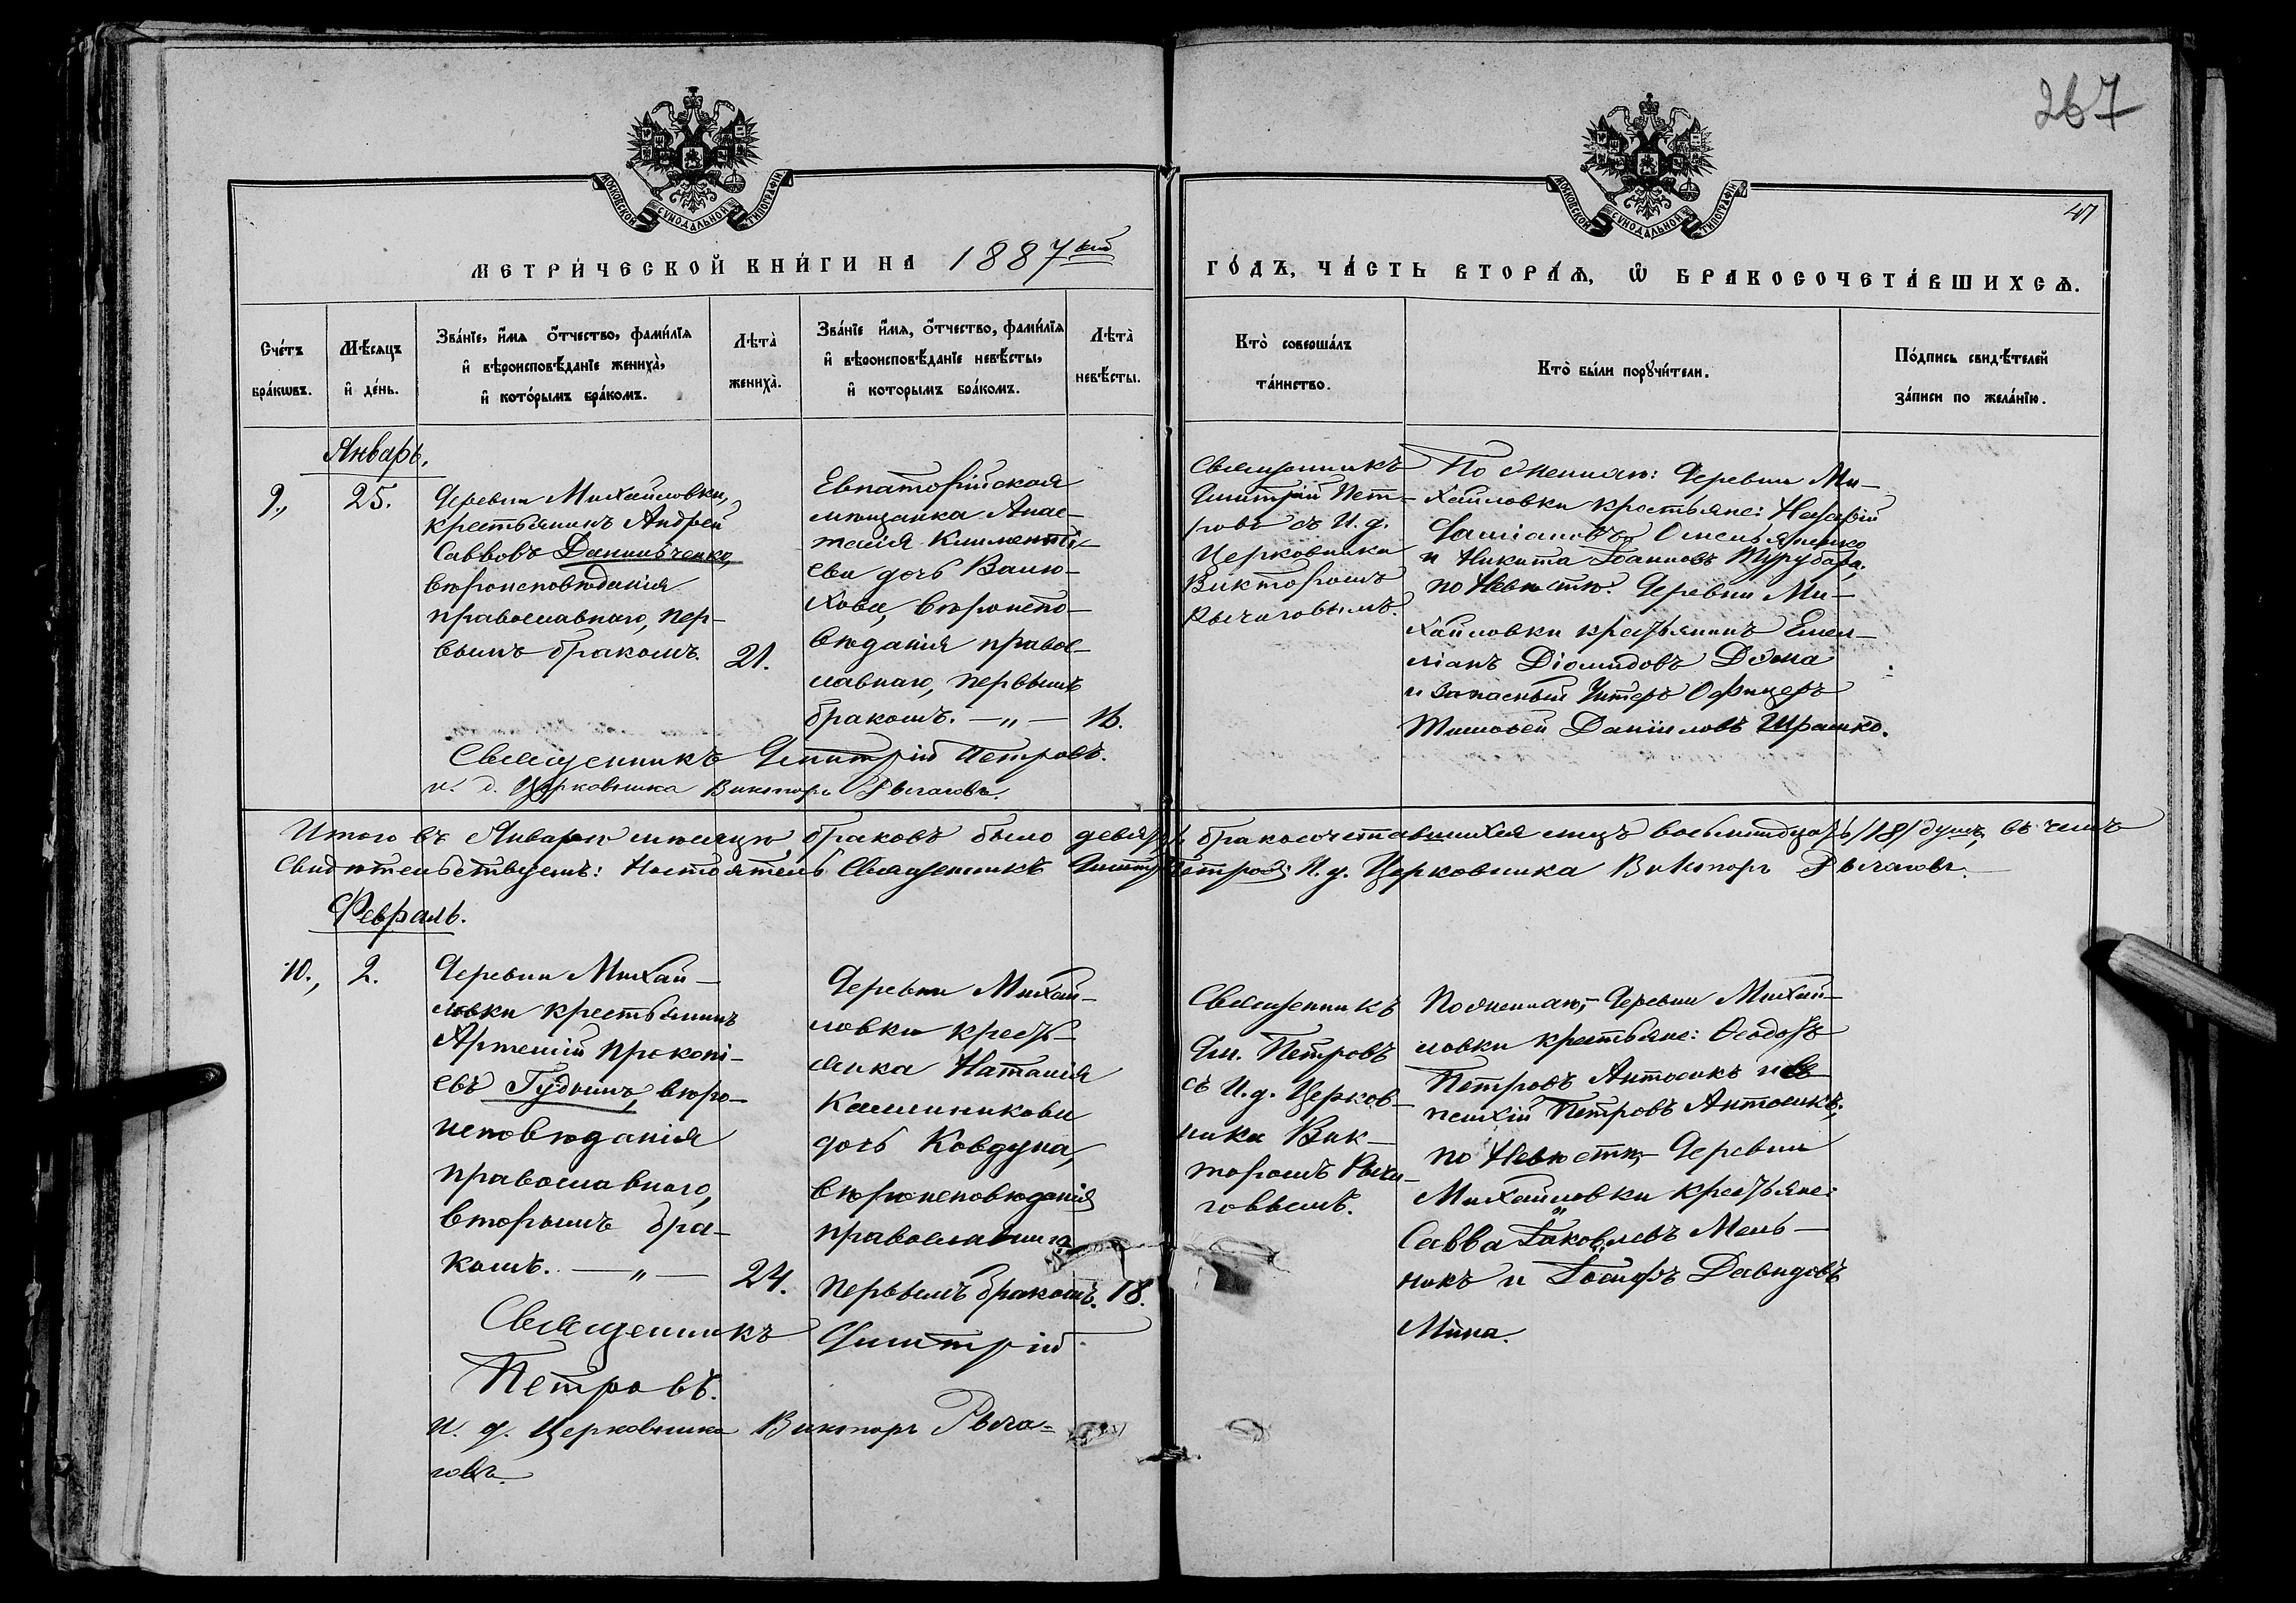 267
МОСКОВСКОЙ СѴНОДАЛЬНОЙ ТИПОГРАФІИ
МОСКОВСКОЙ СѴНОДАЛЬНОЙ ТИПОГРАФІИ
47
МЕТРИ́ЧЕСКОЙ КНИ́ГИ НА 1887кій
ГО́ДЪ, ЧА́СТЬ ВТОРА́Ѧ, Ѽ БРАКОСОЧЕТА́ВШИХСѦ.
Сче́тъ
бра́кѡвъ.
Мѣ́сяцъ
и҆ де́нь.
Зва́нїе, и҆́мя ѻ҆́тчество, фами́лїя
и҆ вѣроисповѣ́данїе жениха̀,
и҆ кото́рымъ бра́комъ.
Лѣта̀
жениха̀.
Зва́нїе и҆́мя, ѻ҆́тчество, фами́лїя
и҆ вѣроисповѣ́данїе невѣ́сты,
и҆ которымъ бра́комъ.
Лѣта̀
невѣ́сты.
Кто̀ соверша́лъ
та́инство.
Кто̀ бы́ли порꙋчи́тели.
По́дпись свидѣ́телей
за́писи по жела́нїю.
Январь.
9., 25.
Деревни Михайловки,
крестьянинъ Андрей
Савовъ Данильченко,
вѣроисповѣданія
православнаго, пер-
вымъ бракомъ. 21.
Евпаторійская
мѣщанка Анас-
тасія Климентї-
ева дочь Валю-
хова, вѣроиспо-
вѣданія правос-
лавнаго, первымъ
бракомъ. —„— 16.
Священникъ
Димитрій Пет-
ровъ съ И. д.
Церковника
Викторомъ
Рычаговымъ.
По Жениху: Деревни Ми-
хайловки крестьяне: Назарій
Даміановъ Омельяненко
и Никита Іоанновъ Турубара,
по Невѣстѣ: Деревни Ми-
хайловки крестьянинъ Емел-
ліанъ Діомидовъ Дёма
и запасный Унтеръ Офицеръ
Тимофей Даніиловъ Шрамко.
Священникъ Димитрій Петровъ.
и. д. Церковника Викторъ Рычаговъ.
Итого въ Январѣ мѣсяцѣ браковъ было девять, бракосочетавшихся лицъ восьмнадцать /18/ душъ, въ чемъ
Свидѣтельствуемъ: Настоятель Священникъ Димитр Петровъ И. д. Церковника Викторъ Рычаговъ.
Февраль.
10., 2.
Деревни Михай-
ловки крестьянинъ
Артемій Прокопі-
евъ Гудымъ, вѣро-
исповѣданія
православнаго,
вторымъ бра-
комъ. —„— 24.
Деревни Михай-
ловки кресть-
янка Наталія
Каллиникова
дочь Ковдуна,
вѣроисповѣданія
православнаго
первымъ бракомъ. 18.
Священникъ
Дим. Петровъ
съ И. д. Церков-
ника Вик-
торомъ Рыча-
говымъ.
По жениху,- Деревни Михай-
ловки крестьяне: Ѳеодоръ
Петровъ Антоникъ и Ев-
психій Петровъ Антоникъ.
по Невѣстѣ,- Деревни
Михайловки крестьяне:
Савва Іаковлевъ Мель-
никъ и Іосифъ Давидовъ
Мина.
Священникъ Димитрій
Петровъ.
и. д. Церковника Викторъ Рыча=
говъ.